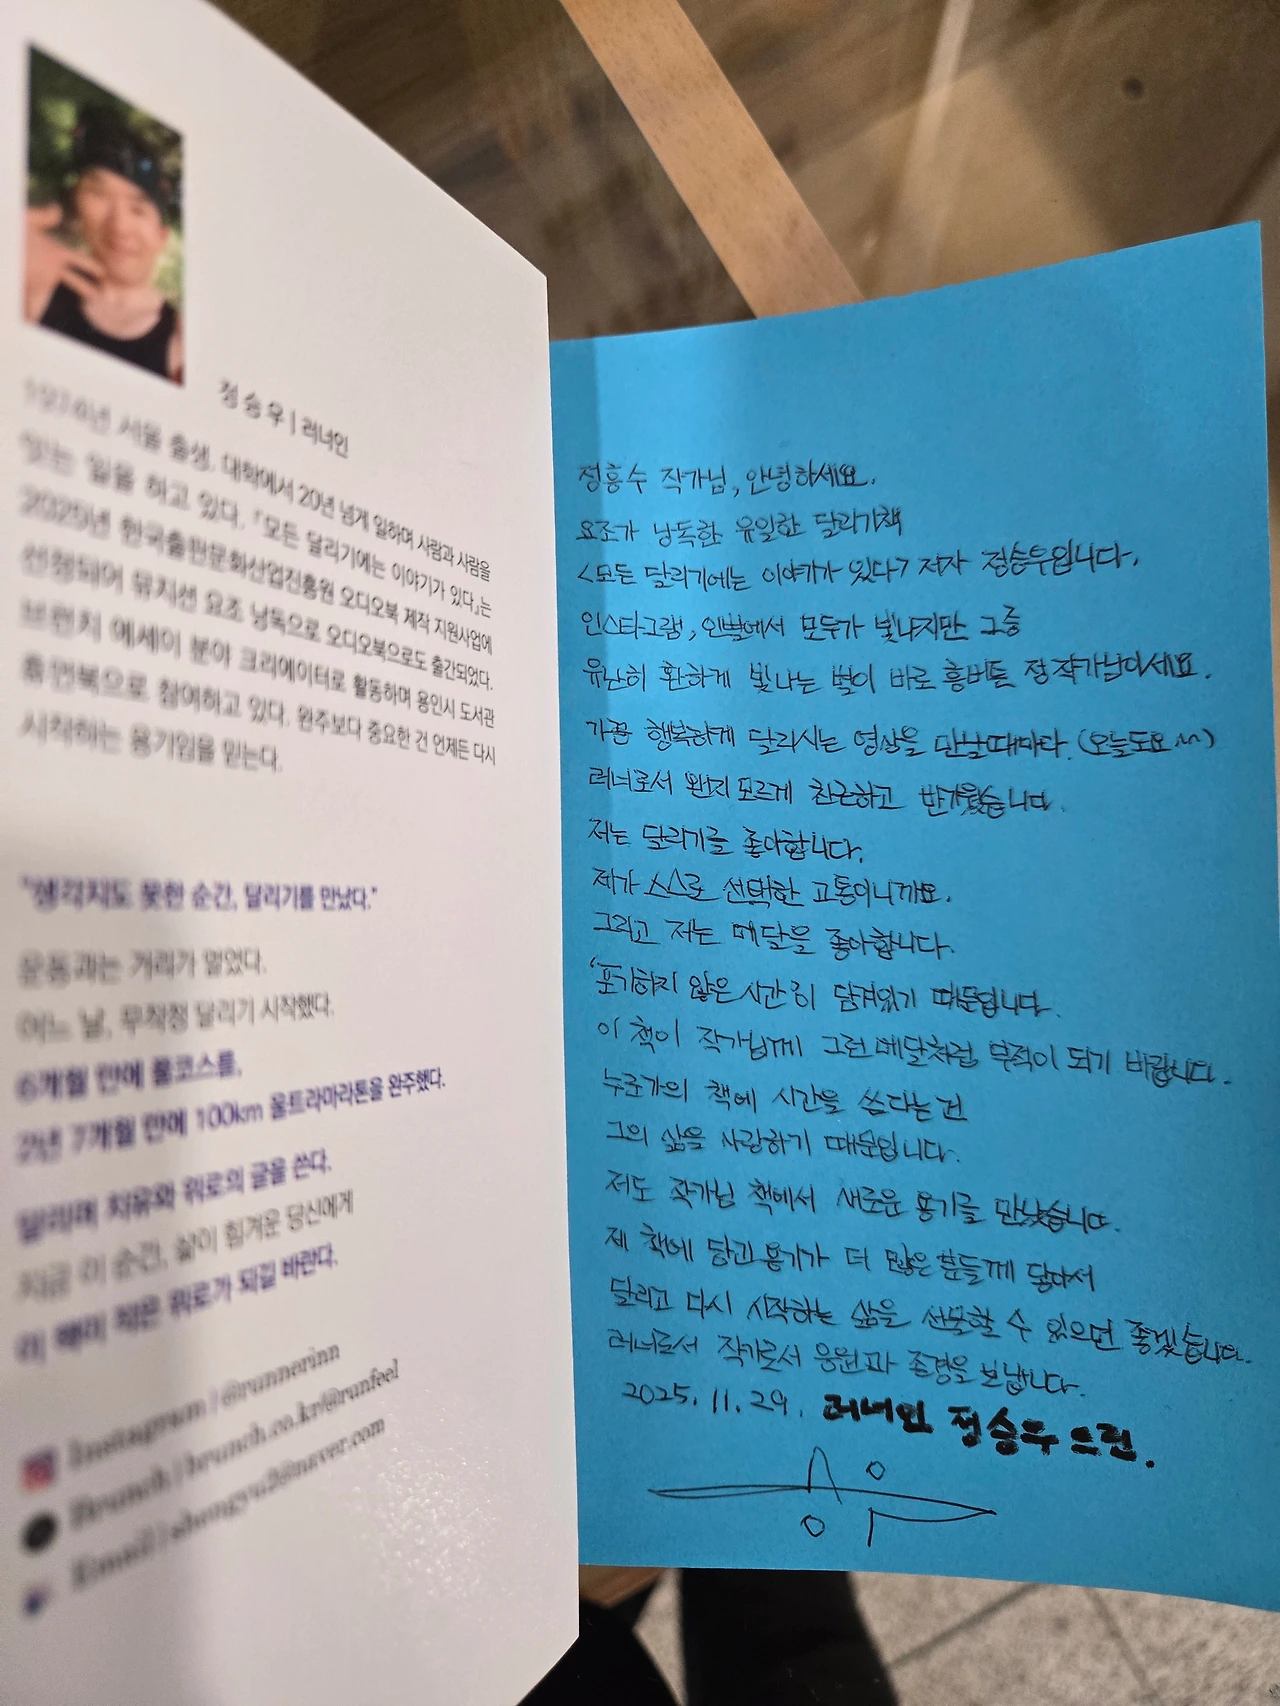 정승우 | 러너인
1974년 서울 출생. 대학에서 20년 넘게 일하며 사람과 사람을
잇는 일을 하고 있다. 『모든 달리기에는 이야기가 있다』는
2025년 한국출판문화산업진흥원 오디오북 제작 지원사업에
선정되어 뮤지션 요조 낭독으로 오디오북으로도 출간되었다.
브런치 에세이 분야 크리에이터로 활동하며 용인시 도서관
휴먼북으로 참여하고 있다. 완주보다 중요한 건 언제든 다시
시작하는 용기임을 믿는다.
"생각지도 못한 순간, 달리기를 만났다."
운동과는 거리가 멀었다.
어느 날, 무작정 달리기 시작했다.
6개월 만에 풀코스를,
2년 7개월 만에 100km 울트라마라톤을 완주했다.
달리며 치유와 위로의 글을 쓴다.
지금 이 순간, 삶이 힘겨운 당신에게
이 책이 작은 위로가 되길 바란다.
Instagram | @runnerinn
Brunch | brunch.co.kr/@runfeel
Email | shengyu2@naver.com
정흥수 작가님, 안녕하세요.
요조가 낭독한 유일한 달리기책
<모든 달리기에는 이야기가 있다> 저자 정승우입니다.
인스타그램, 인별에서 모두가 빛나지만 그중
유난히 환하게 빛나는 별이 바로 흥버튼 정작가님이세요.
가끔 행복하게 달리시는 영상을 만날때마다. (오늘도요 ^^)
러너로서 왠지 모르게 친근하고 반가웠습니다.
저는 달리기를 좋아합니다.
제가 스스로 선택한 고통이니까요.
그리고 저는 메달을 좋아합니다.
'포기하지 않은 시간'이 담겨있기 때문입니다.
이 책이 작가님께 그런 메달처럼 부적이 되기 바랍니다.
누군가의 책에 시간을 쓴다는건
그의 삶을 사랑하기 때문입니다.
저도 작가님 책에서 새로운 용기를 만났습니다.
제 책에 담긴 용기가 더 많은 분들께 닿아서
달리고 다시 시작하는 삶을 선물할 수 있으면 좋겠습니다.
러너로서 작가로서 응원과 존경을 보냅니다.
2025. 11. 29. 러너인 정승우 드림.